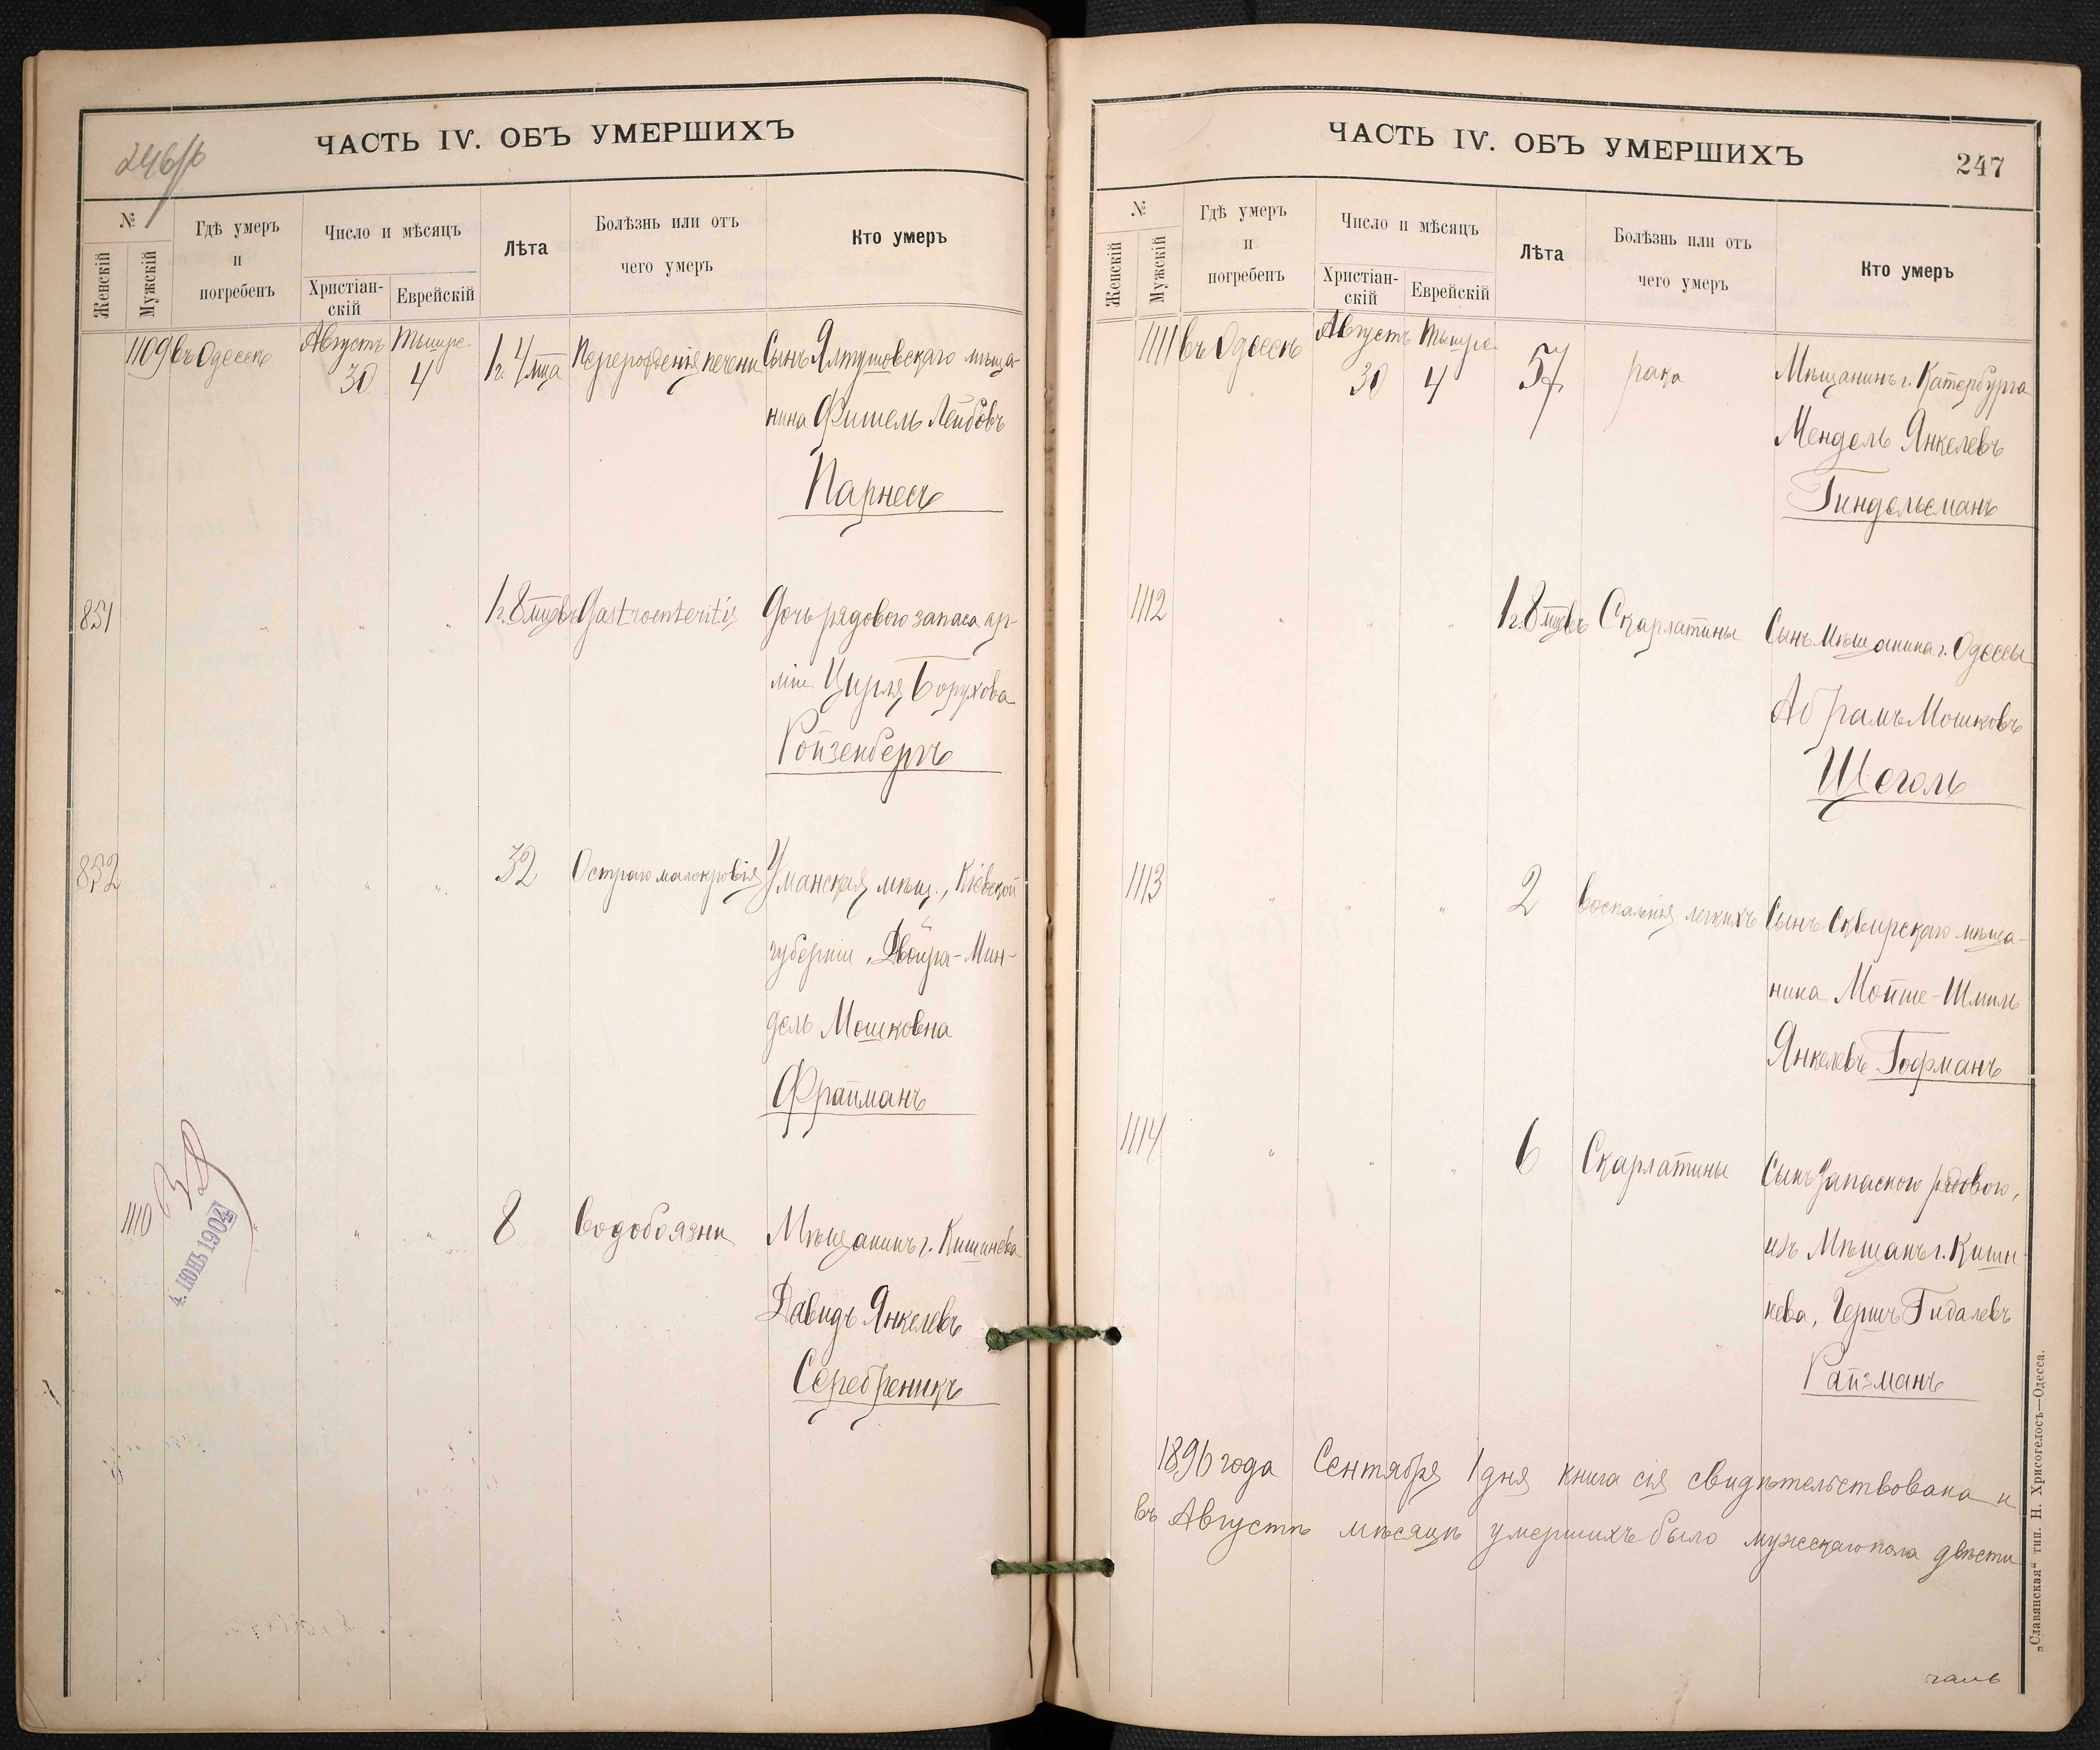 246/б
ЧАСТЬ IV. ОБЪ УМЕРШИХЪ
№
Женскій
Мужскій
Гдѣ умеръ
и
погребенъ
Число и мѣсяцъ
Христіан-
скій
Еврейскій
Лѣта
Болѣзнь или отъ
чего умеръ
Кто умеръ
1109 въ Одессѣ Августъ 30 Тишре 4 1 г. 4 м-ца Перерожденія печени Сынъ Ялтушовскаго мѣща-
нина Фишель Лейбовъ
Парнесъ
851 " " " 1 г. 8 м-цевъ Gastroenteritis Дочь рядового запаса ар-
міи Цирля Борухова
Ройзенбергъ
852 " " " 32 Остраго малокровія Уманская мѣщ., Кіевской
губерніи, Двойра-Мин-
дель Мошковна
Фрайманъ
4. ІЮНЬ 190
1110 " " 8 Водобоязни Мѣщанинъ г. Кишинева
Давидъ Янкелевъ
Серебреникъ
ЧАСТЬ IV. ОБЪ УМЕРШИХЪ
247
№
Женскій
Мужскій
Гдѣ умеръ
и
погребенъ
Число и мѣсяцъ
Христіан-
скій
Еврейскій
Лѣта
Болѣзнь или отъ
чего умеръ
Кто умеръ
1111 въ Одессѣ Августъ 30 Тишре 4 57 рака Мѣщанинъ г. Катербурга
Мендель Янкелевъ
Гиндельсманъ
1112 " " " 1 г. 8 м-цевъ Скарлатины Сынъ Мѣщанина г. Одессы
Абрамъ Мошковъ
Щеголь
1113 " " " 2 воспаленія легкихъ Сынъ Сквирскаго мѣща-
нина Мойше-Шмиль
Янкелевъ Гофманъ
1114 " " " 6 Скарлатины Сынъ Запасного рядового,
изъ Мѣщанъ г. Киши-
нева, Гершъ Гидалевъ
Райзманъ
1896 года Сентября 1 дня книга сія свидѣтельствована и
въ Августѣ мѣсяцѣ умершихъ было мужескаго пола двѣсти
„Славянская“ тип. Н. Хрисогелосъ—Одесса.